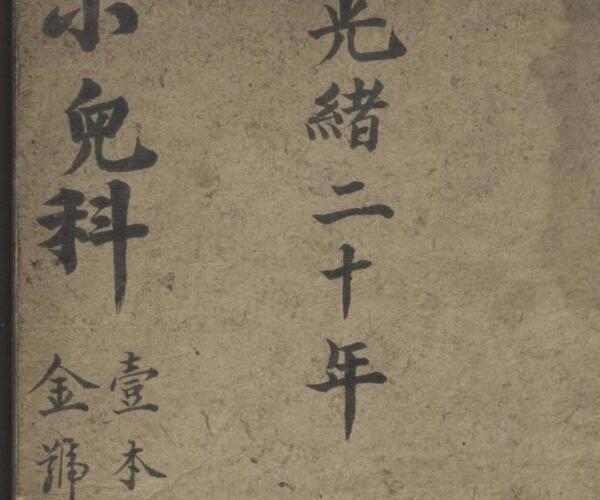 光緒二十年
小兒科
壹本
金號